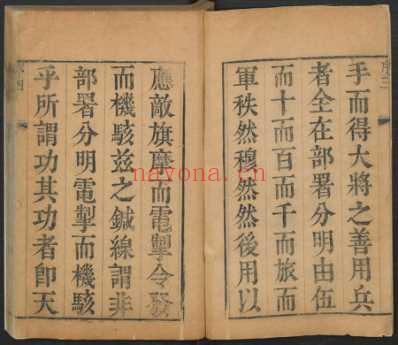 手而得大將之善用兵
者全在部署分明由伍
而十而百而千而旅而
軍秩然穆然然後用以
應敵旗麾而電掣令發
而機駭兹之鍼線謂非
部署分明電掣而機駭
乎所謂功其功者卽天
nayona.cn